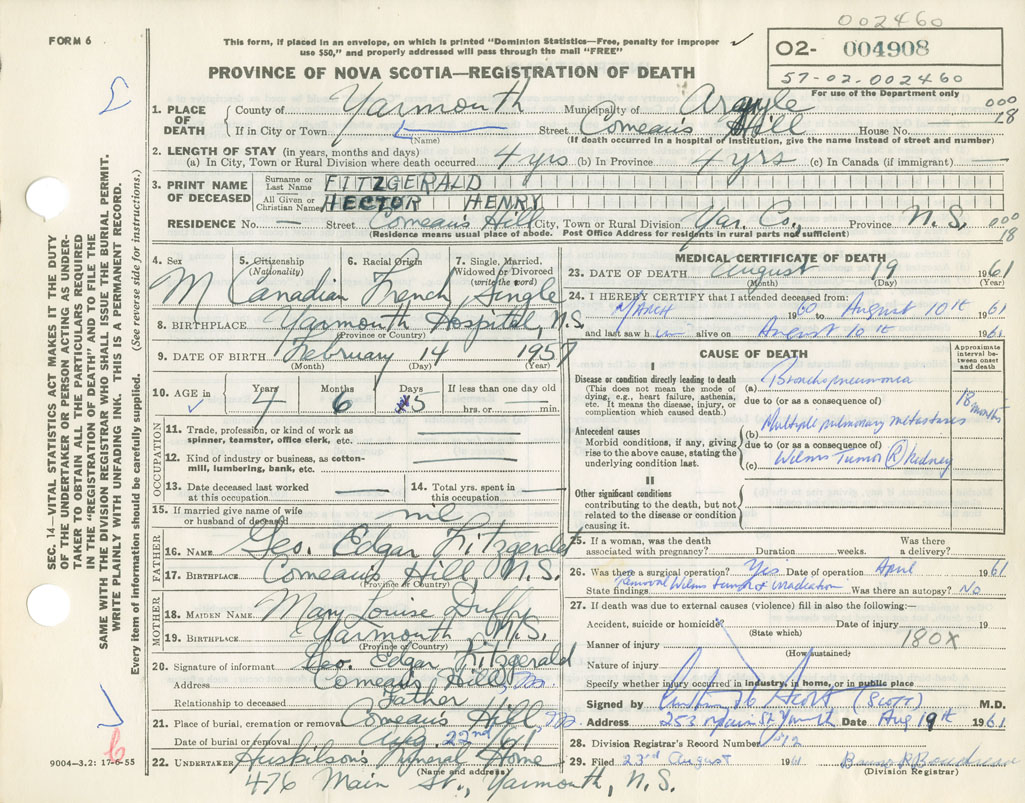 002460
FORM 6
This form, if placed in an envelope, on which is printed "Dominion Statistics—Free, penalty for improper
use $50," and properly addressed will pass through the mail "FREE"
PROVINCE OF NOVA SCOTIA—REGISTRATION OF DEATH
O2- 004908
57-02-002460
For use of the Department only
1. PLACE OF DEATH { County of Yarmouth Municipality of Argyle 000
If in City or Town (Name) Street Comeau's Hill House No. 18
(If death occurred in a hospital or institution, give the name instead of street and number)
2. LENGTH OF STAY (in years, months and days)
(a) In City, Town or Rural Division where death occurred 4 yrs (b) In Province 4 yrs (c) In Canada (if immigrant) —
3. PRINT NAME OF DECEASED { Surname or Last Name FITZGERALD
All Given or Christian Names HECTOR HENRY
RESIDENCE No. — Street Comeau's Hill City, Town or Rural Division Yar. Co., Province N.S. 000
(Residence means usual place of abode. Post Office Address for residents in rural parts not sufficient) 18
4. Sex M
5. Citizenship (Nationality) Canadian
6. Racial Origin French
7. Single, Married, Widowed or Divorced (write the word) Single
8. BIRTHPLACE Yarmouth Hospital, N.S.
(Province or Country)
9. DATE OF BIRTH February 14 1957
(Month) (Day) (Year)
10. AGE in Years 4 Months 6 Days 5 If less than one day old
hrs. or min.
OCCUPATION
11. Trade, profession, or kind of work as spinner, teamster, office clerk, etc. —
12. Kind of industry or business, as cotton-mill, lumbering, bank, etc. —
13. Date deceased last worked at this occupation —
14. Total yrs. spent in this occupation —
15. If married give name of wife or husband of deceased nil
FATHER
16. NAME Geo. Edgar Fitzgerald
17. BIRTHPLACE Comeau's Hill, N.S.
(Province or Country)
MOTHER
18. MAIDEN NAME Mary Louise Duffy
19. BIRTHPLACE Yarmouth, N.S.
(Province or Country)
20. Signature of informant Geo. Edgar Fitzgerald
Address Comeau's Hill
Relationship to deceased Father
21. Place of burial, cremation or removal Comeau's Hill
Date of burial or removal Aug 22nd 1961
22. UNDERTAKER Huskilson's Funeral Home
(Name and address)
476 Main St., Yarmouth, N.S.
MEDICAL CERTIFICATE OF DEATH
23. DATE OF DEATH August 19 1961
(Month) (Day) (Year)
24. I HEREBY CERTIFY that I attended deceased from:
MARCH 1960 to August 10th 1961
and last saw h im alive on August 10th 1961
CAUSE OF DEATH
Approximate interval between onset and death
I
Disease or condition directly leading to death
(This does not mean the mode of dying, e.g., heart failure, asthenia, etc. It means the disease, injury, or complication which caused death.)
(a) Bronchopneumonia
due to (or as a consequence of)
Antecedent causes
Morbid conditions, if any, giving rise to the above cause, stating the underlying condition last.
(b) Multiple pulmonary metastases
18 months
due to (or as a consequence of)
(c) Wilms Tumor (R) kidney
II
Other significant conditions
contributing to the death, but not related to the disease or condition causing it.
25. If a woman, was the death associated with pregnancy? Duration weeks. Was there a delivery?
26. Was there a surgical operation? Yes Date of operation April 1961
State findings Removal Wilms tumor & irradiation Was there an autopsy? No
27. If death was due to external causes (violence) fill in also the following:—
Accident, suicide or homicide? Date of injury 19
(State which)
Manner of injury 180X
(How sustained)
Nature of injury
Specify whether injury occurred in industry, in home, or in public place
Signed by (SCOTT) M.D.
Address 253 Main St Date Aug 19th 1961
28. Division Registrar's Record Number #12
29. Filed 23rd August 1961
(Division Registrar)
SEC. 14—VITAL STATISTICS ACT MAKES IT THE DUTY
OF THE UNDERTAKER OR PERSON ACTING AS UNDER-
TAKER TO OBTAIN ALL THE PARTICULARS REQUIRED
IN THE "REGISTRATION OF DEATH" AND TO FILE THE
SAME WITH THE DIVISION REGISTRAR WHO SHALL ISSUE THE BURIAL PERMIT.
WRITE PLAINLY WITH UNFADING INK. THIS IS A PERMANENT RECORD.
Every item of information should be carefully supplied. (See reverse side for instructions.)
9004—3.2: 17-6-55